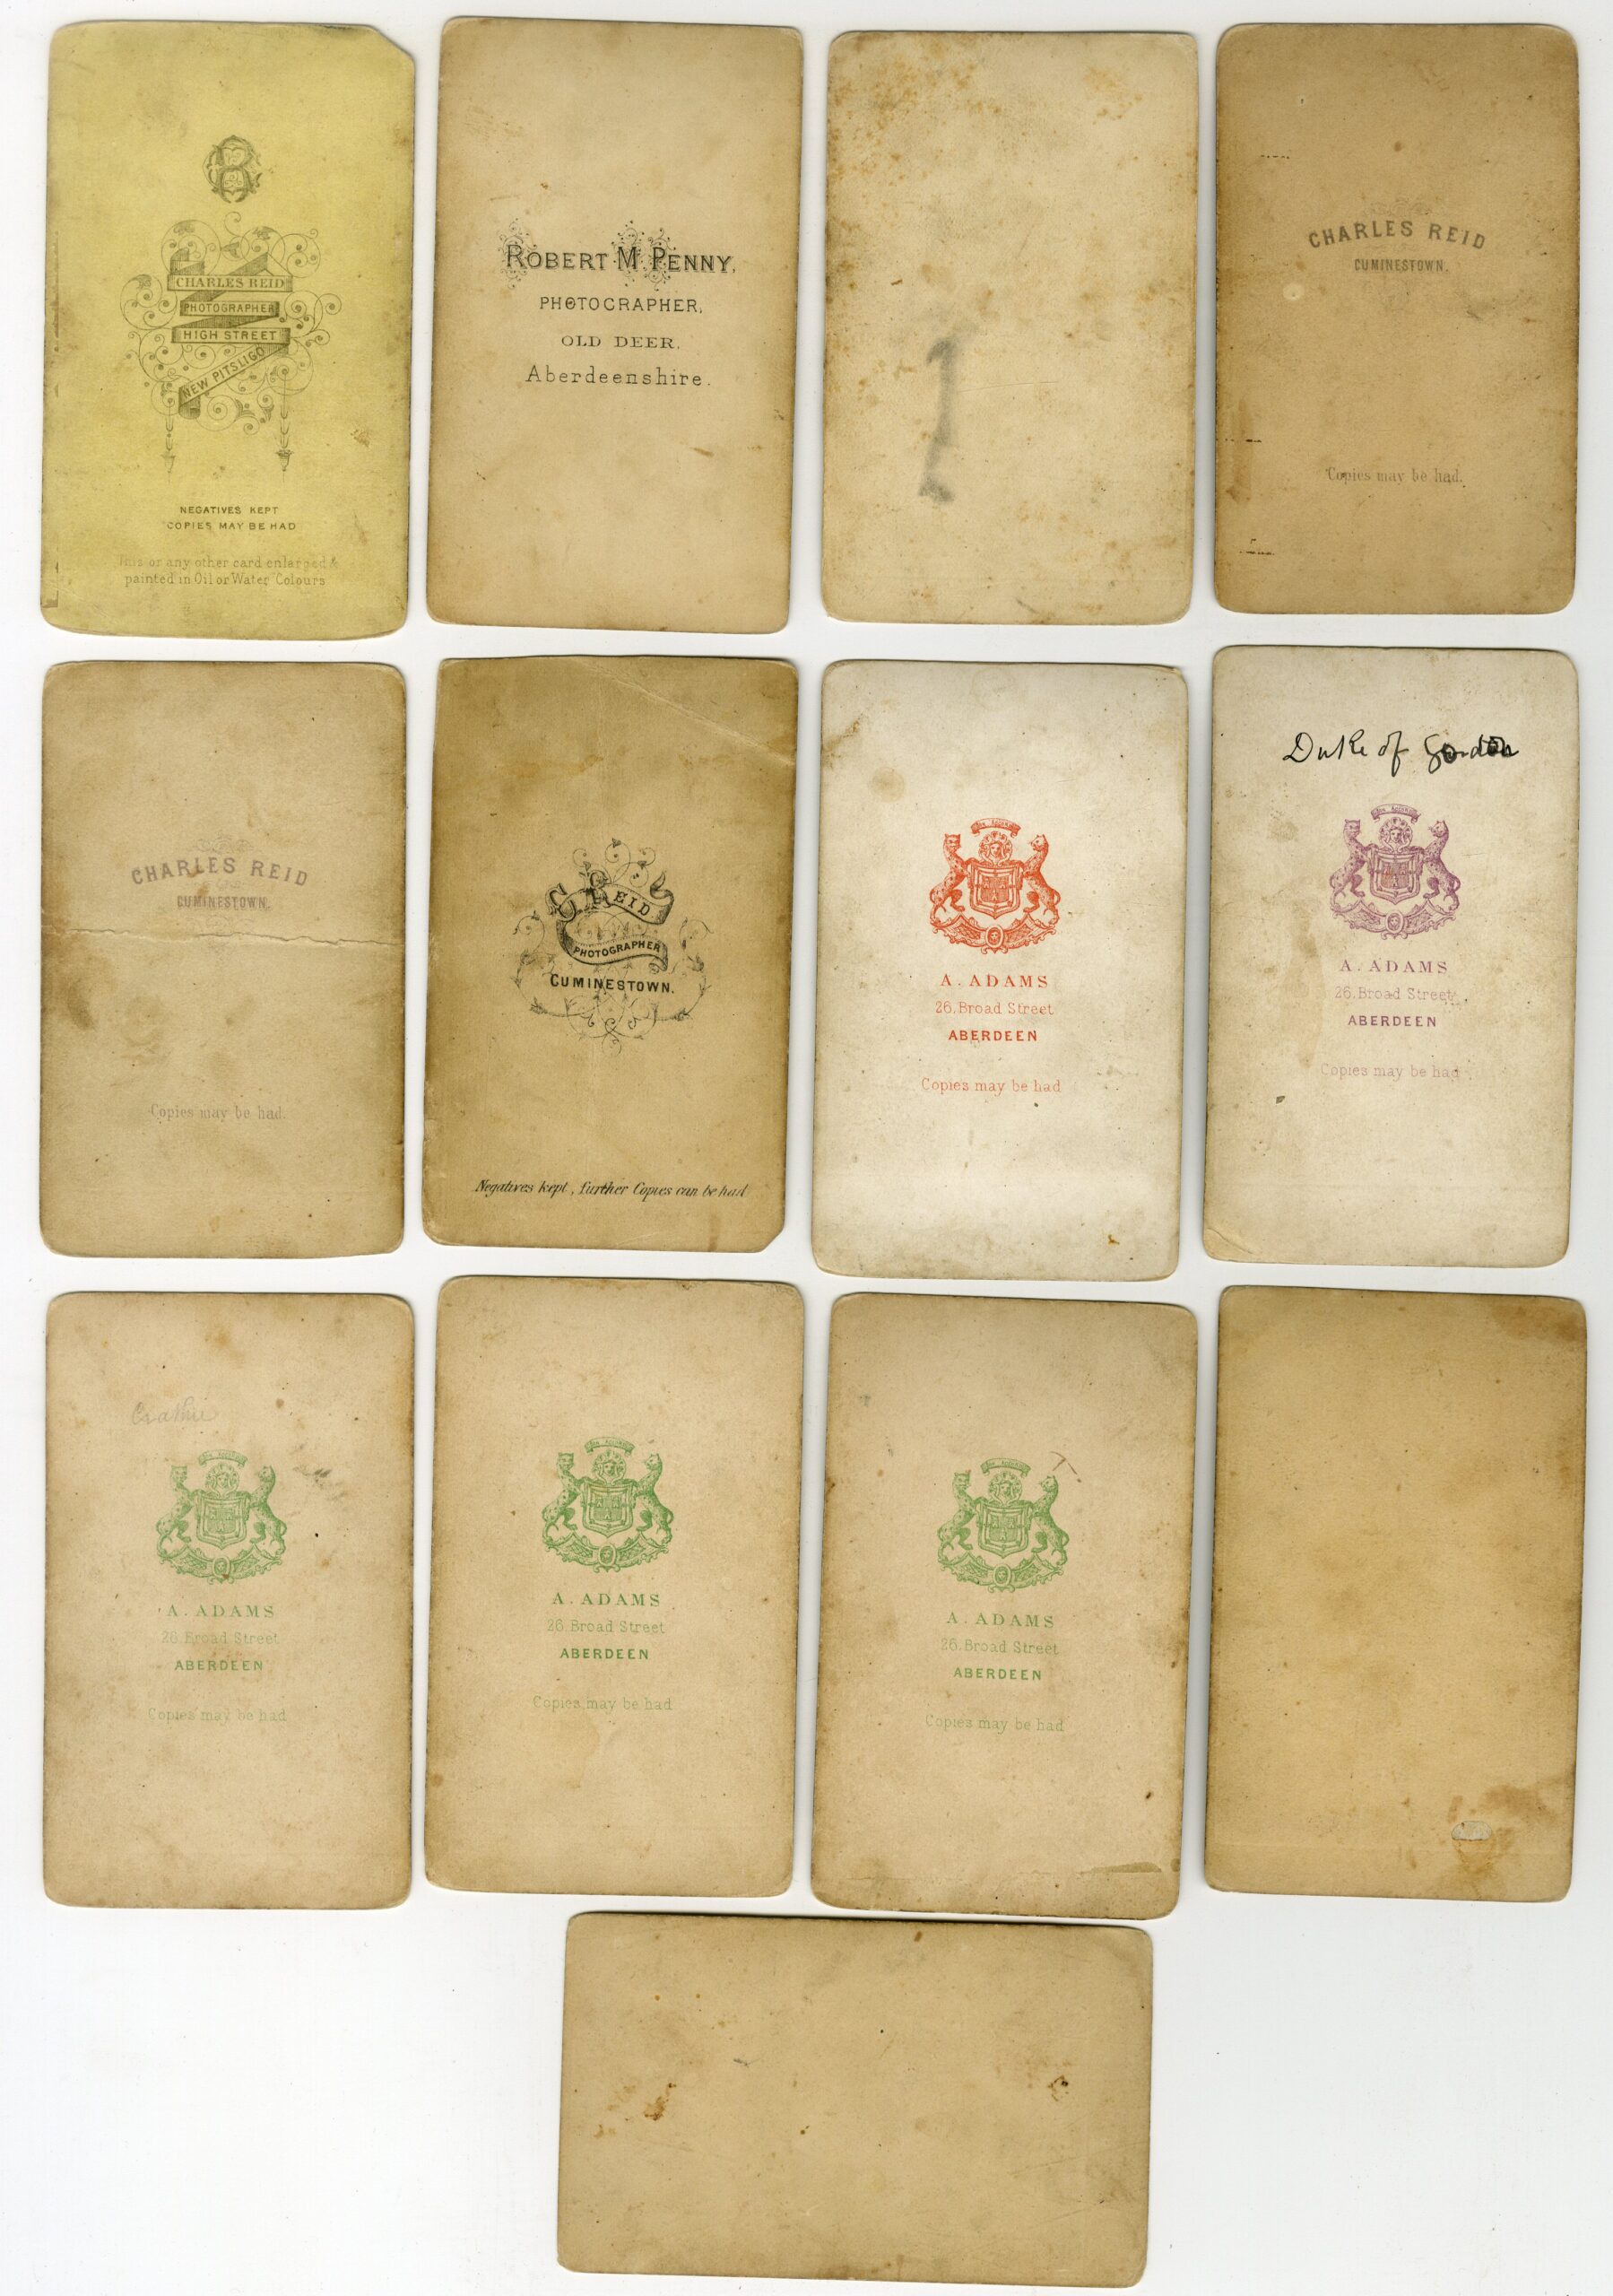 CHARLES REID
PHOTOGRAPHER
HIGH STREET
NEW PITSLIGO
NEGATIVES KEPT
COPIES MAY BE HAD
This or any other card enlarged &
painted in Oil or Water Colours
ROBERT M. PENNY,
PHOTOGRAPHER,
OLD DEER.
Aberdeenshire.
CHARLES REID
CUMINESTOWN.
Copies may be had.
CHARLES REID
CUMINESTOWN.
Copies may be had.
C. REID
PHOTOGRAPHER
CUMINESTOWN.
Negatives kept, further Copies can be had
A. ADAMS
26, Broad Street
ABERDEEN
Copies may be had
Duke of Gordon
A. ADAMS
26, Broad Street
ABERDEEN
Copies may be had
Crathie
A. ADAMS
26, Broad Street
ABERDEEN
Copies may be had
A. ADAMS
26, Broad Street
ABERDEEN
Copies may be had
A. ADAMS
26, Broad Street
ABERDEEN
Copies may be had